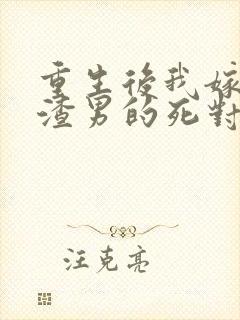 重生後我嫁
渣男的死對
汪克亮